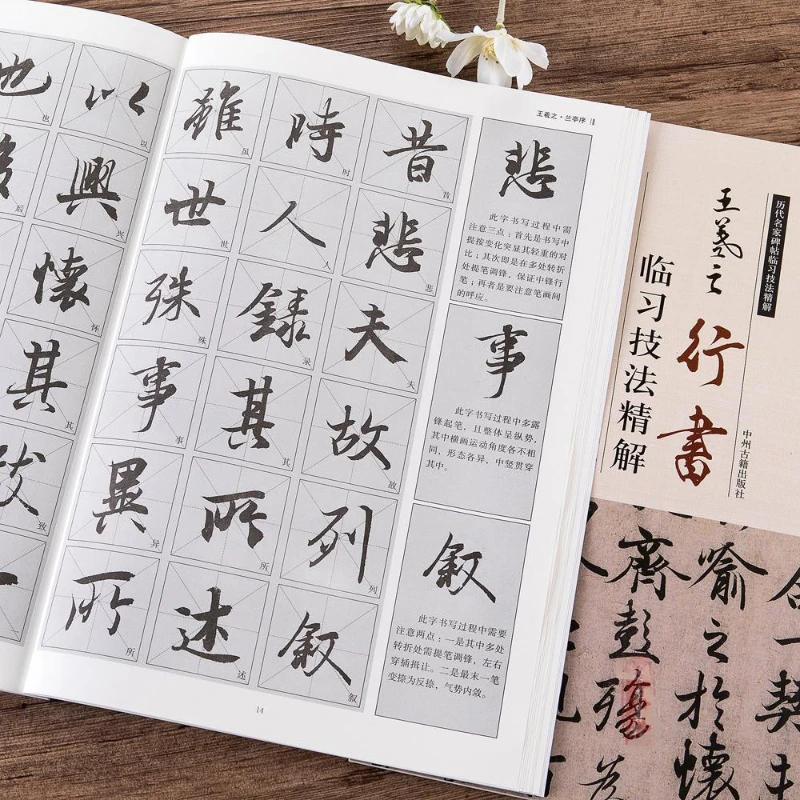 王羲之·兰亭序
昔 昔
悲 悲
夫 夫
故 故
列 列
叙 叙
時 时
人 人
録 录
其 其
所 所
述 述
雖 虽
世 世
殊 殊
事 事
異 异
所 所
悲
此字书写过程中需
注意三点：首先是书写中
提按变化突显其轻重的对
比；其次即是在多处转折
处提笔调锋，保证中锋行
笔；再者是要注意笔画间
的呼应。
事
此字书写过程中多露
锋起笔，且整体呈纵势，
其中横画运动角度各不相
同，形态各异，中竖贯穿
其中。
叙
此字书写过程中需要
注意两点：一是其中多处
转折处需提笔调锋，左右
穿插揖让。二是最末一笔
变捺为反捺，气势内敛。
14
以 以
興 兴
懷 怀
其 其
致 致
也 也
后
历代名家碑帖临习技法精解
王羲之
行書
临习技法精解
中州古籍出版社
合一契
喻之於懷
齊彭殤